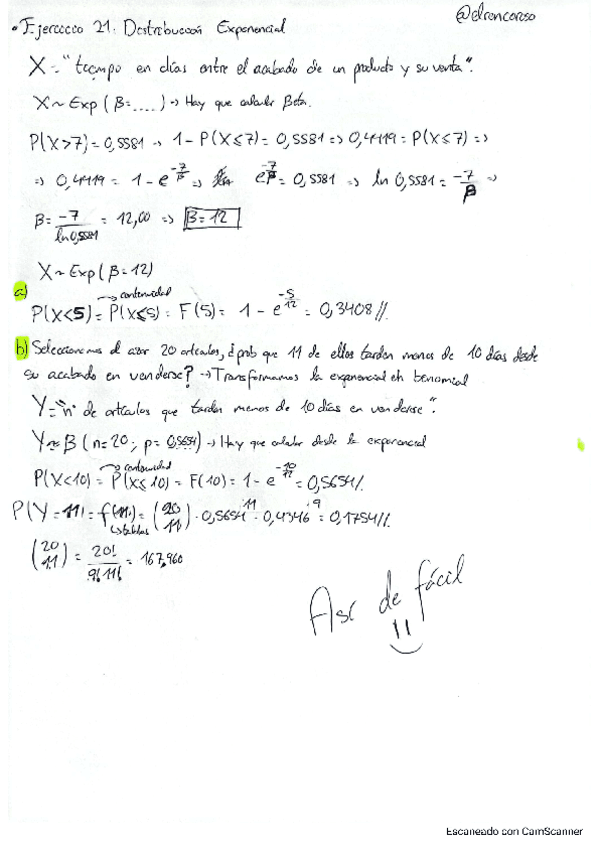 @elrencoroso
• Ejercicio 21: Distribución Exponencial
X = "tiempo en días entre el acabado de un producto y su venta".
X ~ Exp (β = ....) → Hay que calcular Beta.
P(X>7) = 0,5581 → 1 - P(X≤7) = 0,5581 => 0,4419 = P(X≤7) =>
=> 0,4419 = 1 - e^(-7/β) => e^(-7/β) = 0,5581 => ln 0,5581 = -7/β =>
β = -7/ln0,5581 = 12,00 => β = 12
X ~ Exp (β = 12)
a)
→ continuidad
P(X<5) = P(X≤5) = F(5) = 1 - e^(-5/12) = 0,3408//
b) Seleccionamos al azar 20 artículos, ¿prob que 11 de ellos tarden menos de 10 días desde
su acabado en venderse? → Transformamos la exponencial en binomial
Y = "nº de artículos que tardan menos de 10 días en venderse".
Y ~ B (n = 20; p = 0,5654) → Hay que calcular desde la exponencial
→ continuidad
P(X<10) = P(X≤10) = F(10) = 1 - e^(-10/12) = 0,5654/.
P(Y = 11) = f(11) = (20 11) · 0,5654^11 · 0,4346^9 = 0,1754//
↳ tablas
(20 11) = 20!/9!11! = 167,960
Así de fácil
Escaneado con CamScanner